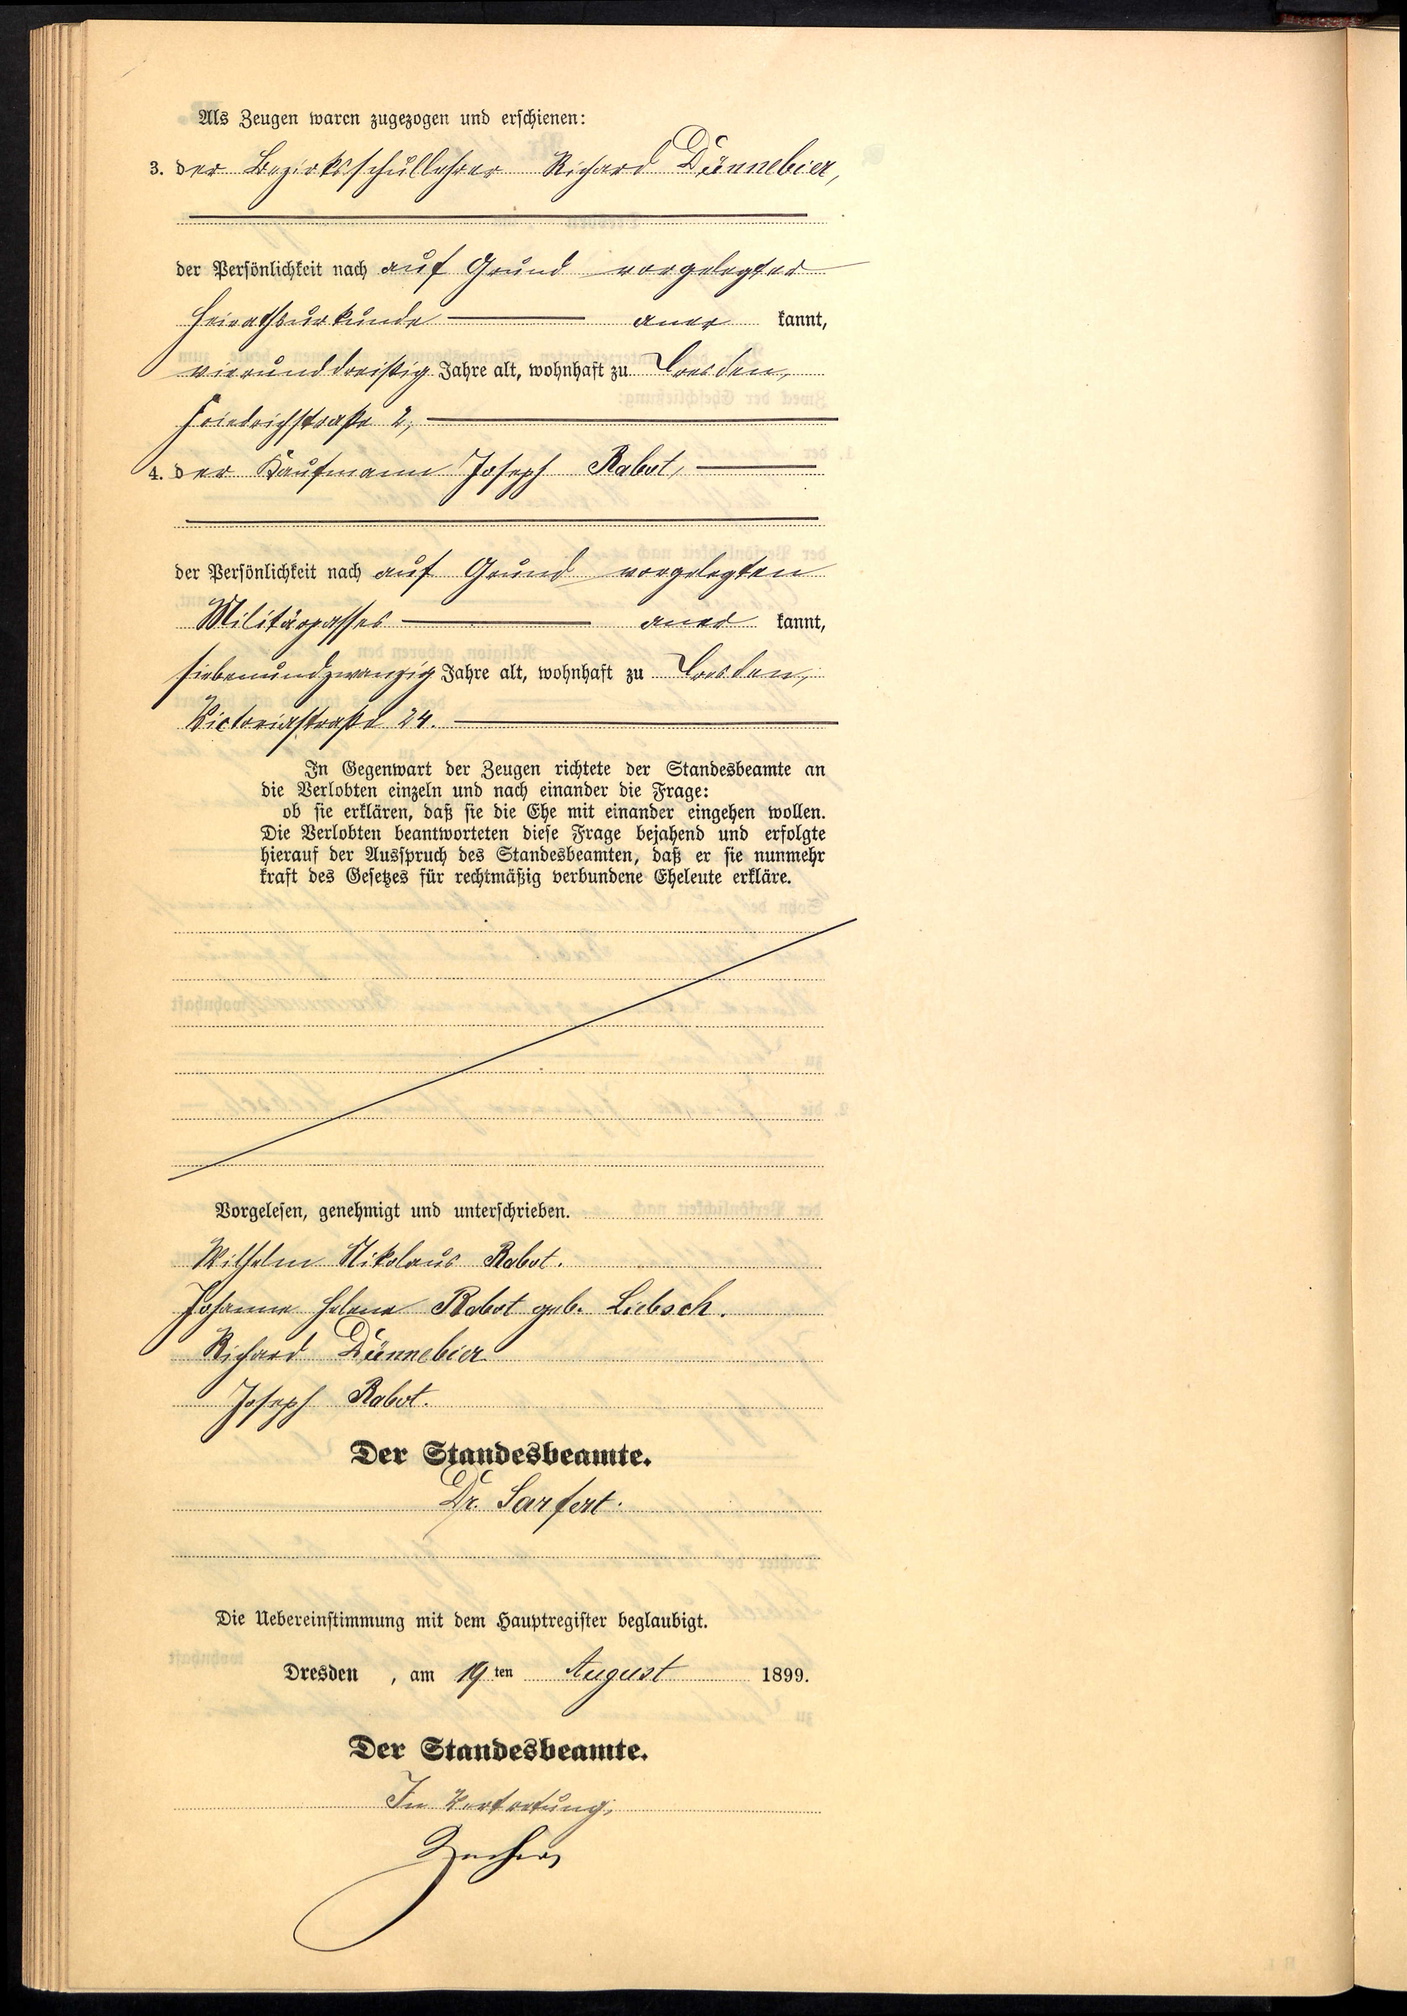 Als Zeugen waren zugezogen und erschienen:
3. der Bezirksschullehrer Richard Dünnebier,
der Persönlichkeit nach auf Grund vorgelegter
Heirathsurkunde aner kannt,
vierunddreißig Jahre alt, wohnhaft zu Dresden,
Friedrichstraße 2,
4. der Kaufmann Joseph Rabot,
der Persönlichkeit nach auf Grund vorgelegten
Militärpasses aner kannt,
siebenundzwanzig Jahre alt, wohnhaft zu Dresden,
Victoriastraße 24.
In Gegenwart der Zeugen richtete der Standesbeamte an
die Verlobten einzeln und nach einander die Frage:
ob sie erklären, daß sie die Ehe mit einander eingehen wollen.
Die Verlobten beantworteten diese Frage bejahend und erfolgte
hierauf der Ausspruch des Standesbeamten, daß er sie nunmehr
kraft des Gesetzes für rechtmäßig verbundene Eheleute erkläre.
Vorgelesen, genehmigt und unterschrieben.
Wilhelm Nikolaus Rabot.
Johanne Helene Rabot geb. Liebsch.
Richard Dünnebier
Joseph Rabot.
Der Standesbeamte.
Dr. Sarfert.
Die Uebereinstimmung mit dem Hauptregister beglaubigt.
Dresden, am 19ten August 1899.
Der Standesbeamte.
In Vertretung: